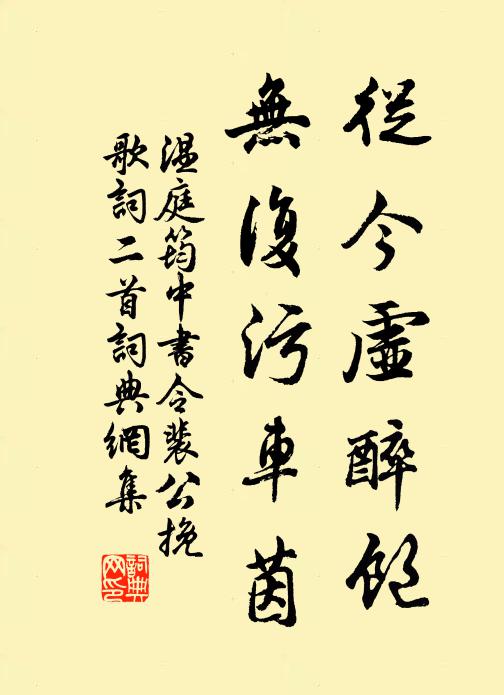 從今虛醉飽
無復污車茵
溫庭筠中書令裴公挽
歌詞二首詞典網集
詞典
网印